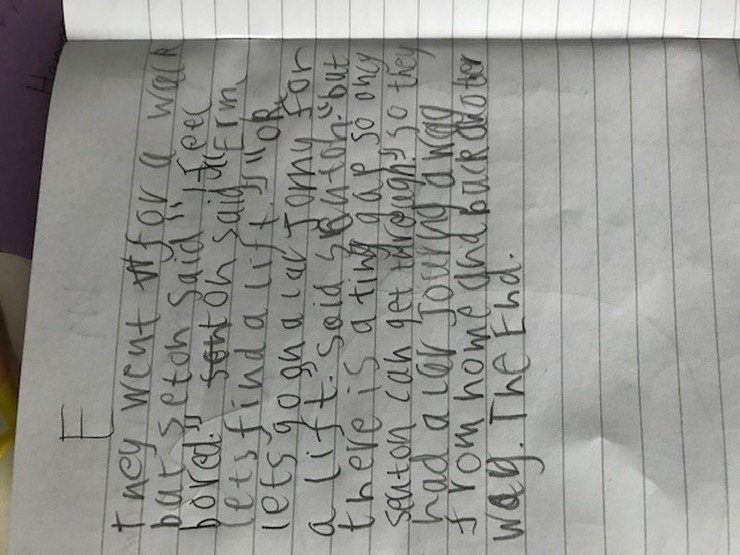 E
they went for a walk
but seton said "I feel
bored." senton said "Erm
lets find a lift." "ok
lets go on a car Jorny for
a lift. said senton. "but
there is a ting gap so only
senton can get through." so they
had a car Jouryd away
from home and back
way. The End.